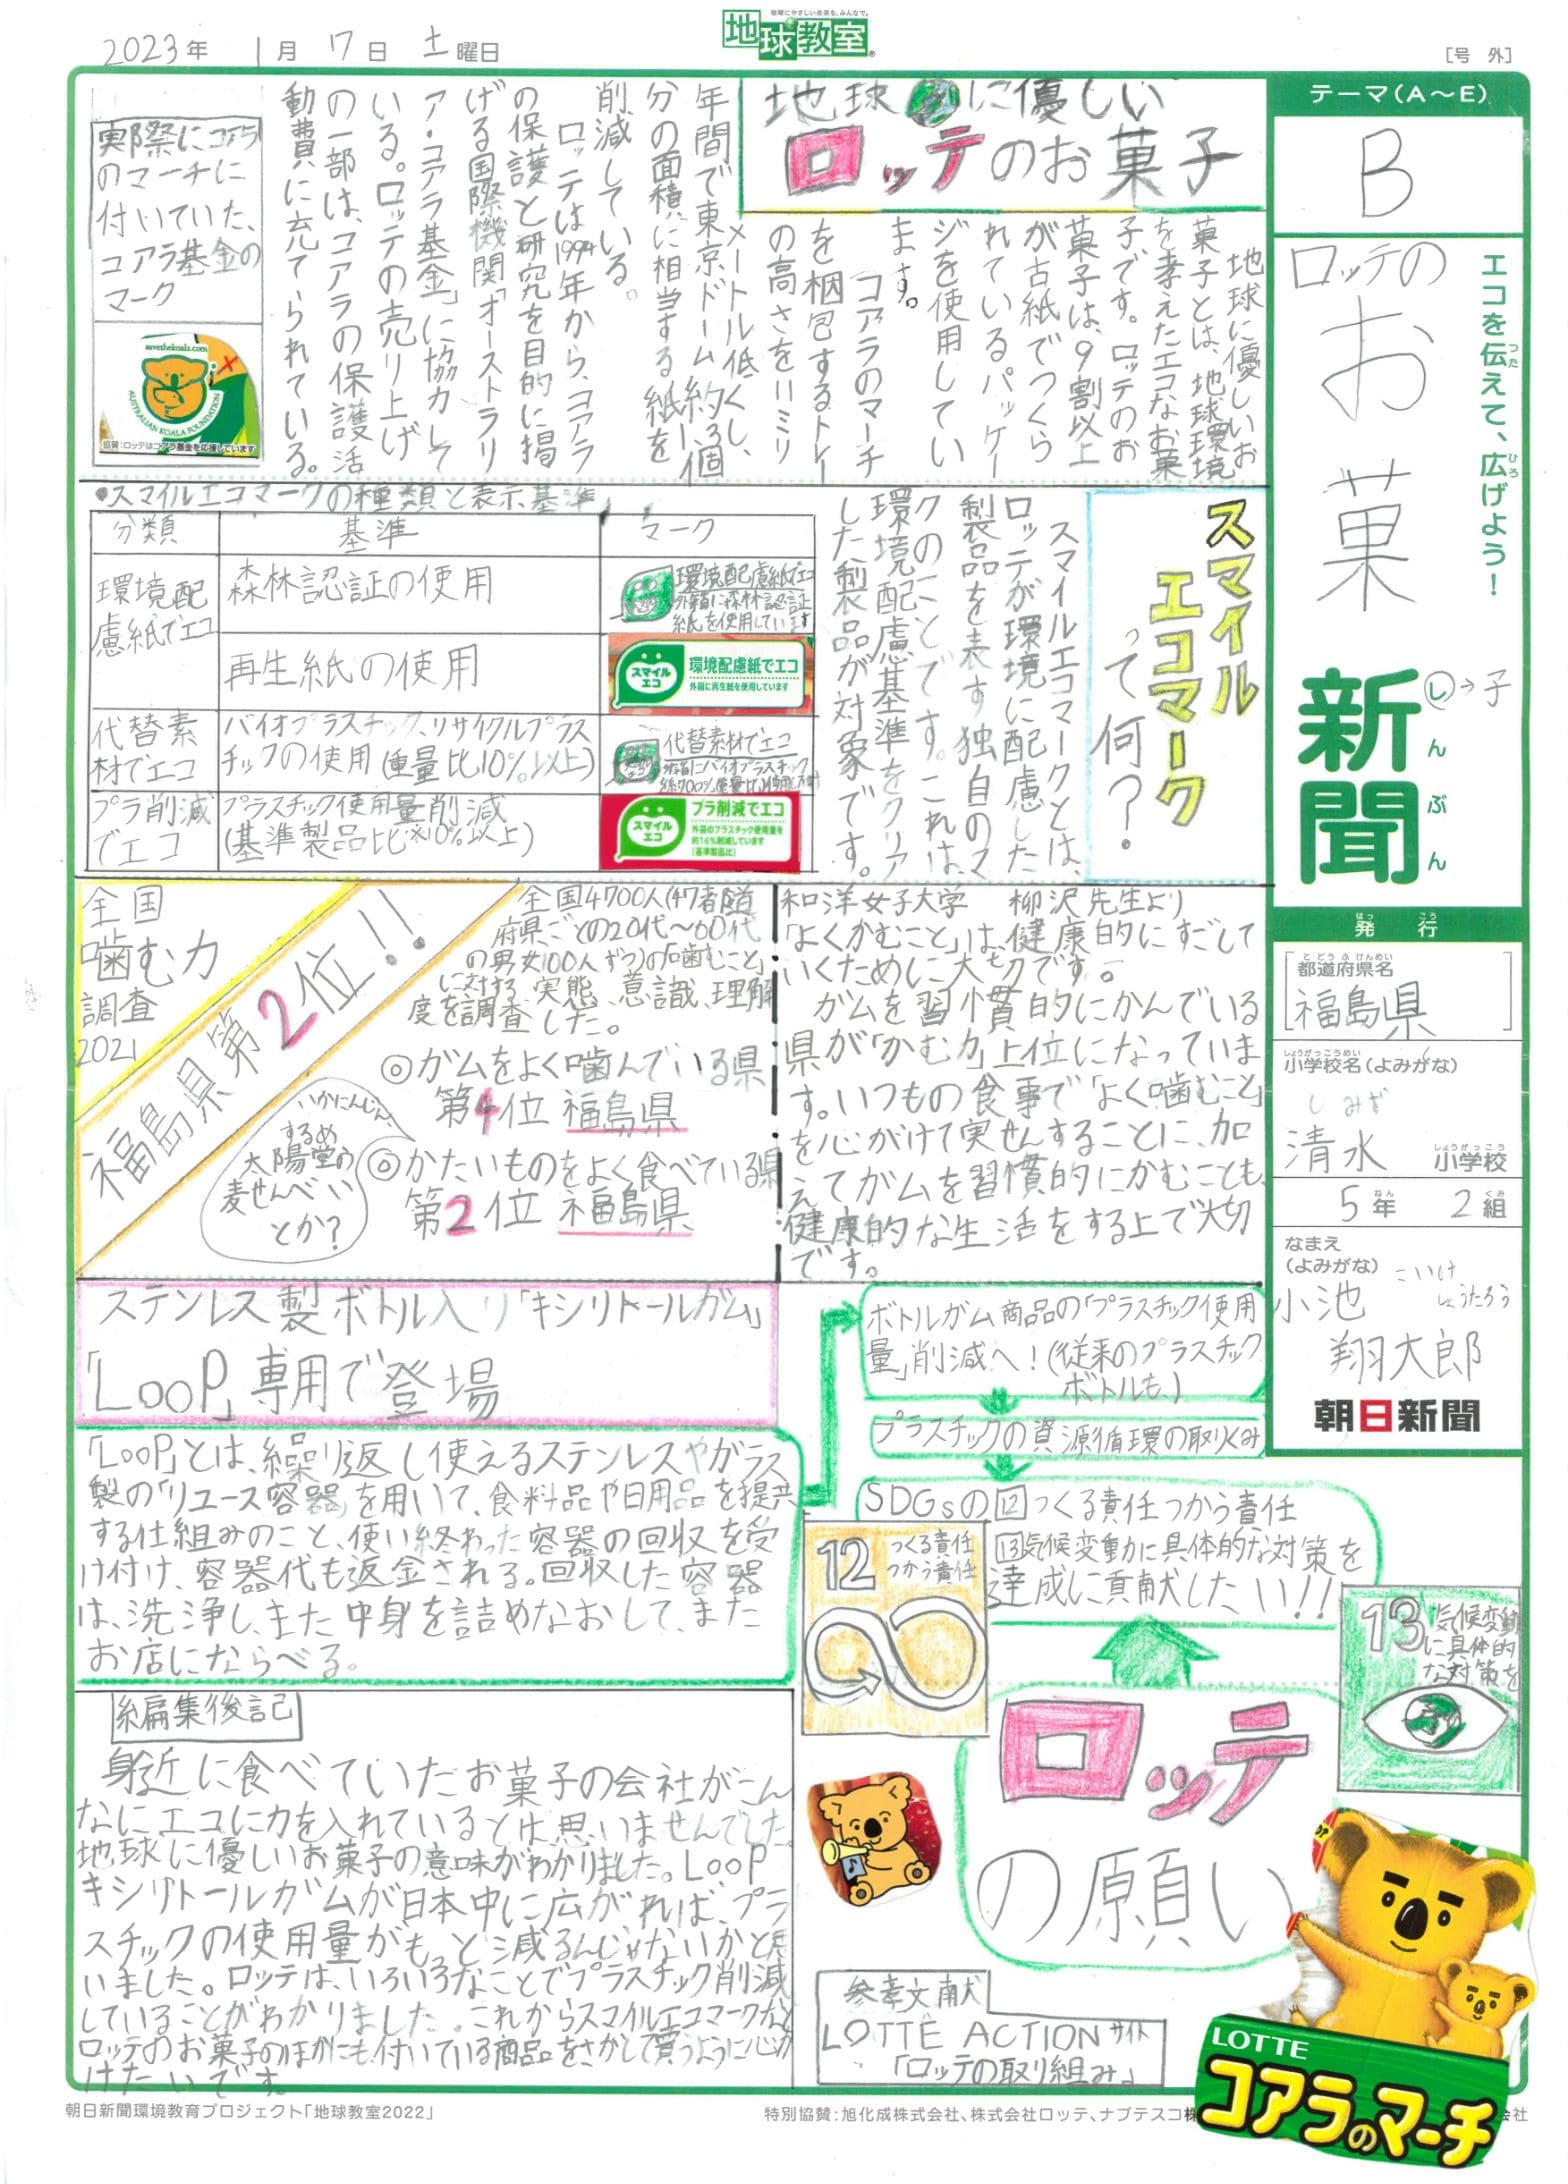 地球にやさしい未来を、みんなで。
地球教室
2023年 1月 7日 土曜日
[号 外]
テーマ(A〜E)
B
エコを伝えて、広げよう!
つた
ひろ
ロッテの
お
菓
し→子
新聞
しんぶん
発行
はっこう
都道府県名
とどうふけんめい
福島県
しょうがっこうめい
小学校名(よみがな)
しみず
清水 小学校
しょうがっこう
5年 2組
ねん くみ
なまえ
(よみがな)
こいけ
しょうたろう
小池
翔太郎
朝日新聞
地球に優しい
ロッテのお菓子
地球に優しいお
菓子とは、地球環境
を考えたエコなお菓
子です。ロッテのお
菓子は、9割以上
が古紙でつくら
れているパッケー
ジを使用してい
ます。
コアラのマーチ
を梱包するトレー
の高さを11ミリ
メートル低くし、
年間で東京ドーム約3個
分の面積に相当する紙を
削減している。
ロッテは1994年から、コアラ
の保護と研究を目的に掲
げる国際機関「オーストラリ
ア・コアラ基金」に協力して
いる。ロッテの売り上げ
の一部は、コアラの保護活
動費に充てられている。
実際にコアラ
のマーチに
付いていた、
コアラ基金の
マーク
savethekoala.com
AUSTRALIAN KOALA FOUNDATION
協賛:ロッテはコアラ基金を応援しています
スマイル
エコマーク
って何?
スマイルエコマークとは、
ロッテが環境に配慮した
製品を表す独自のマ
クのことです。これは、
環境配慮基準をクリア
した製品が対象です。
•スマイルエコマークの種類と表示基準
分類 基準 マーク
環境配
慮紙でエコ
森林認証の使用
環境配慮紙でエコ
外箱に森林認証
紙を使用しています
再生紙の使用
スマイル
エコ
環境配慮紙でエコ
外箱に再生紙を使用しています
代替素
材でエコ
バイオプラスチック、リサイクルプラス
チックの使用(重量比10%以上)
代替素材でエコ
プラ削減
でエコ
プラスチック使用量削減
(基準製品比※10%以上)
スマイル
エコ
プラ削減でエコ
外袋のプラスチック使用量を
約16%削減しています
(基準製品比)
全国
噛む力
調査
2021
福島県第2位!!
全国4700人(47都道
府県ごとの20代〜60代
の男女100人ずつ)の「噛むこと」
に対する実態、意識、理解
度を調査した。
◎ガムをよく噛んでいる県
第4位 福島県
◎かたいものをよく食べている県
第2位 福島県
いかにんじん
するめ
太陽堂の
麦せんべい
とか?
和洋女子大学 柳沢先生より
「よくかむこと」は、健康的にすごして
いくために大切です。
ガムを習慣的にかんでいる
県が「かむ力」上位になっていま
す。いつもの食事で「よく噛むこと」
を心がけて実せんすることに、加
えてガムを習慣的にかむことも、
健康的な生活をする上で大切
です。
ステンレス製ボトル入り「キシリトールガム」
「LooP」専用で登場
「LooP」とは、繰り返し使えるステンレスやガラス
製の「リユース容器」を用いて、食料品や日用品を提供
する仕組みのこと、使い終わった容器の回収を受
け付け、容器代も返金される。回収した容器
は、洗浄し、また中身を詰めなおして、また
お店にならべる。
ボトルガム商品の「プラスチック使用
量」削減へ!(従来のプラスチック
ボトルも)
プラスチックの資源循環の取りくみ
SDGsの12つくる責任つかう責任
13気候変動に具体的な対策を
達成に貢献したい!!
12 つくる責任
つかう責任
13 気候変動
に具体的
な対策を
ロッテ
の願い
編集後記
身近に食べていたお菓子の会社がこん
なにエコに力を入れているとは思いませんでした。
地球に優しいお菓子の意味がわかりました。LooP
キシリトールガムが日本中に広がれば、プラ
スチックの使用量がもっと減るんじゃないかと思
いました。ロッテは、いろいろなことでプラスチック削減
していることがわかりました。これからスマイルエコマークなど
ロッテのお菓子のほかにも付いている商品をさがして買うように心が
けたいです。
参考文献
LOTTE ACTIONサイト
「ロッテの取り組み」
LOTTE
コアラのマーチ
朝日新聞環境教育プロジェクト「地球教室2022」
特別協賛:旭化成株式会社、株式会社ロッテ、ナブテスコ株
会社